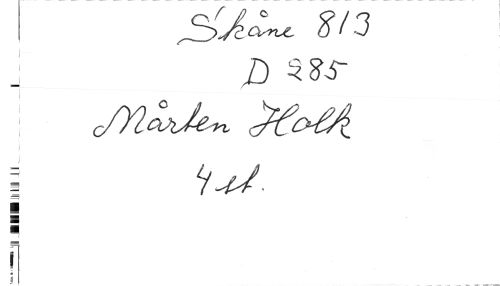 Skåne 813
D 285
Mårten Holk
4 st.